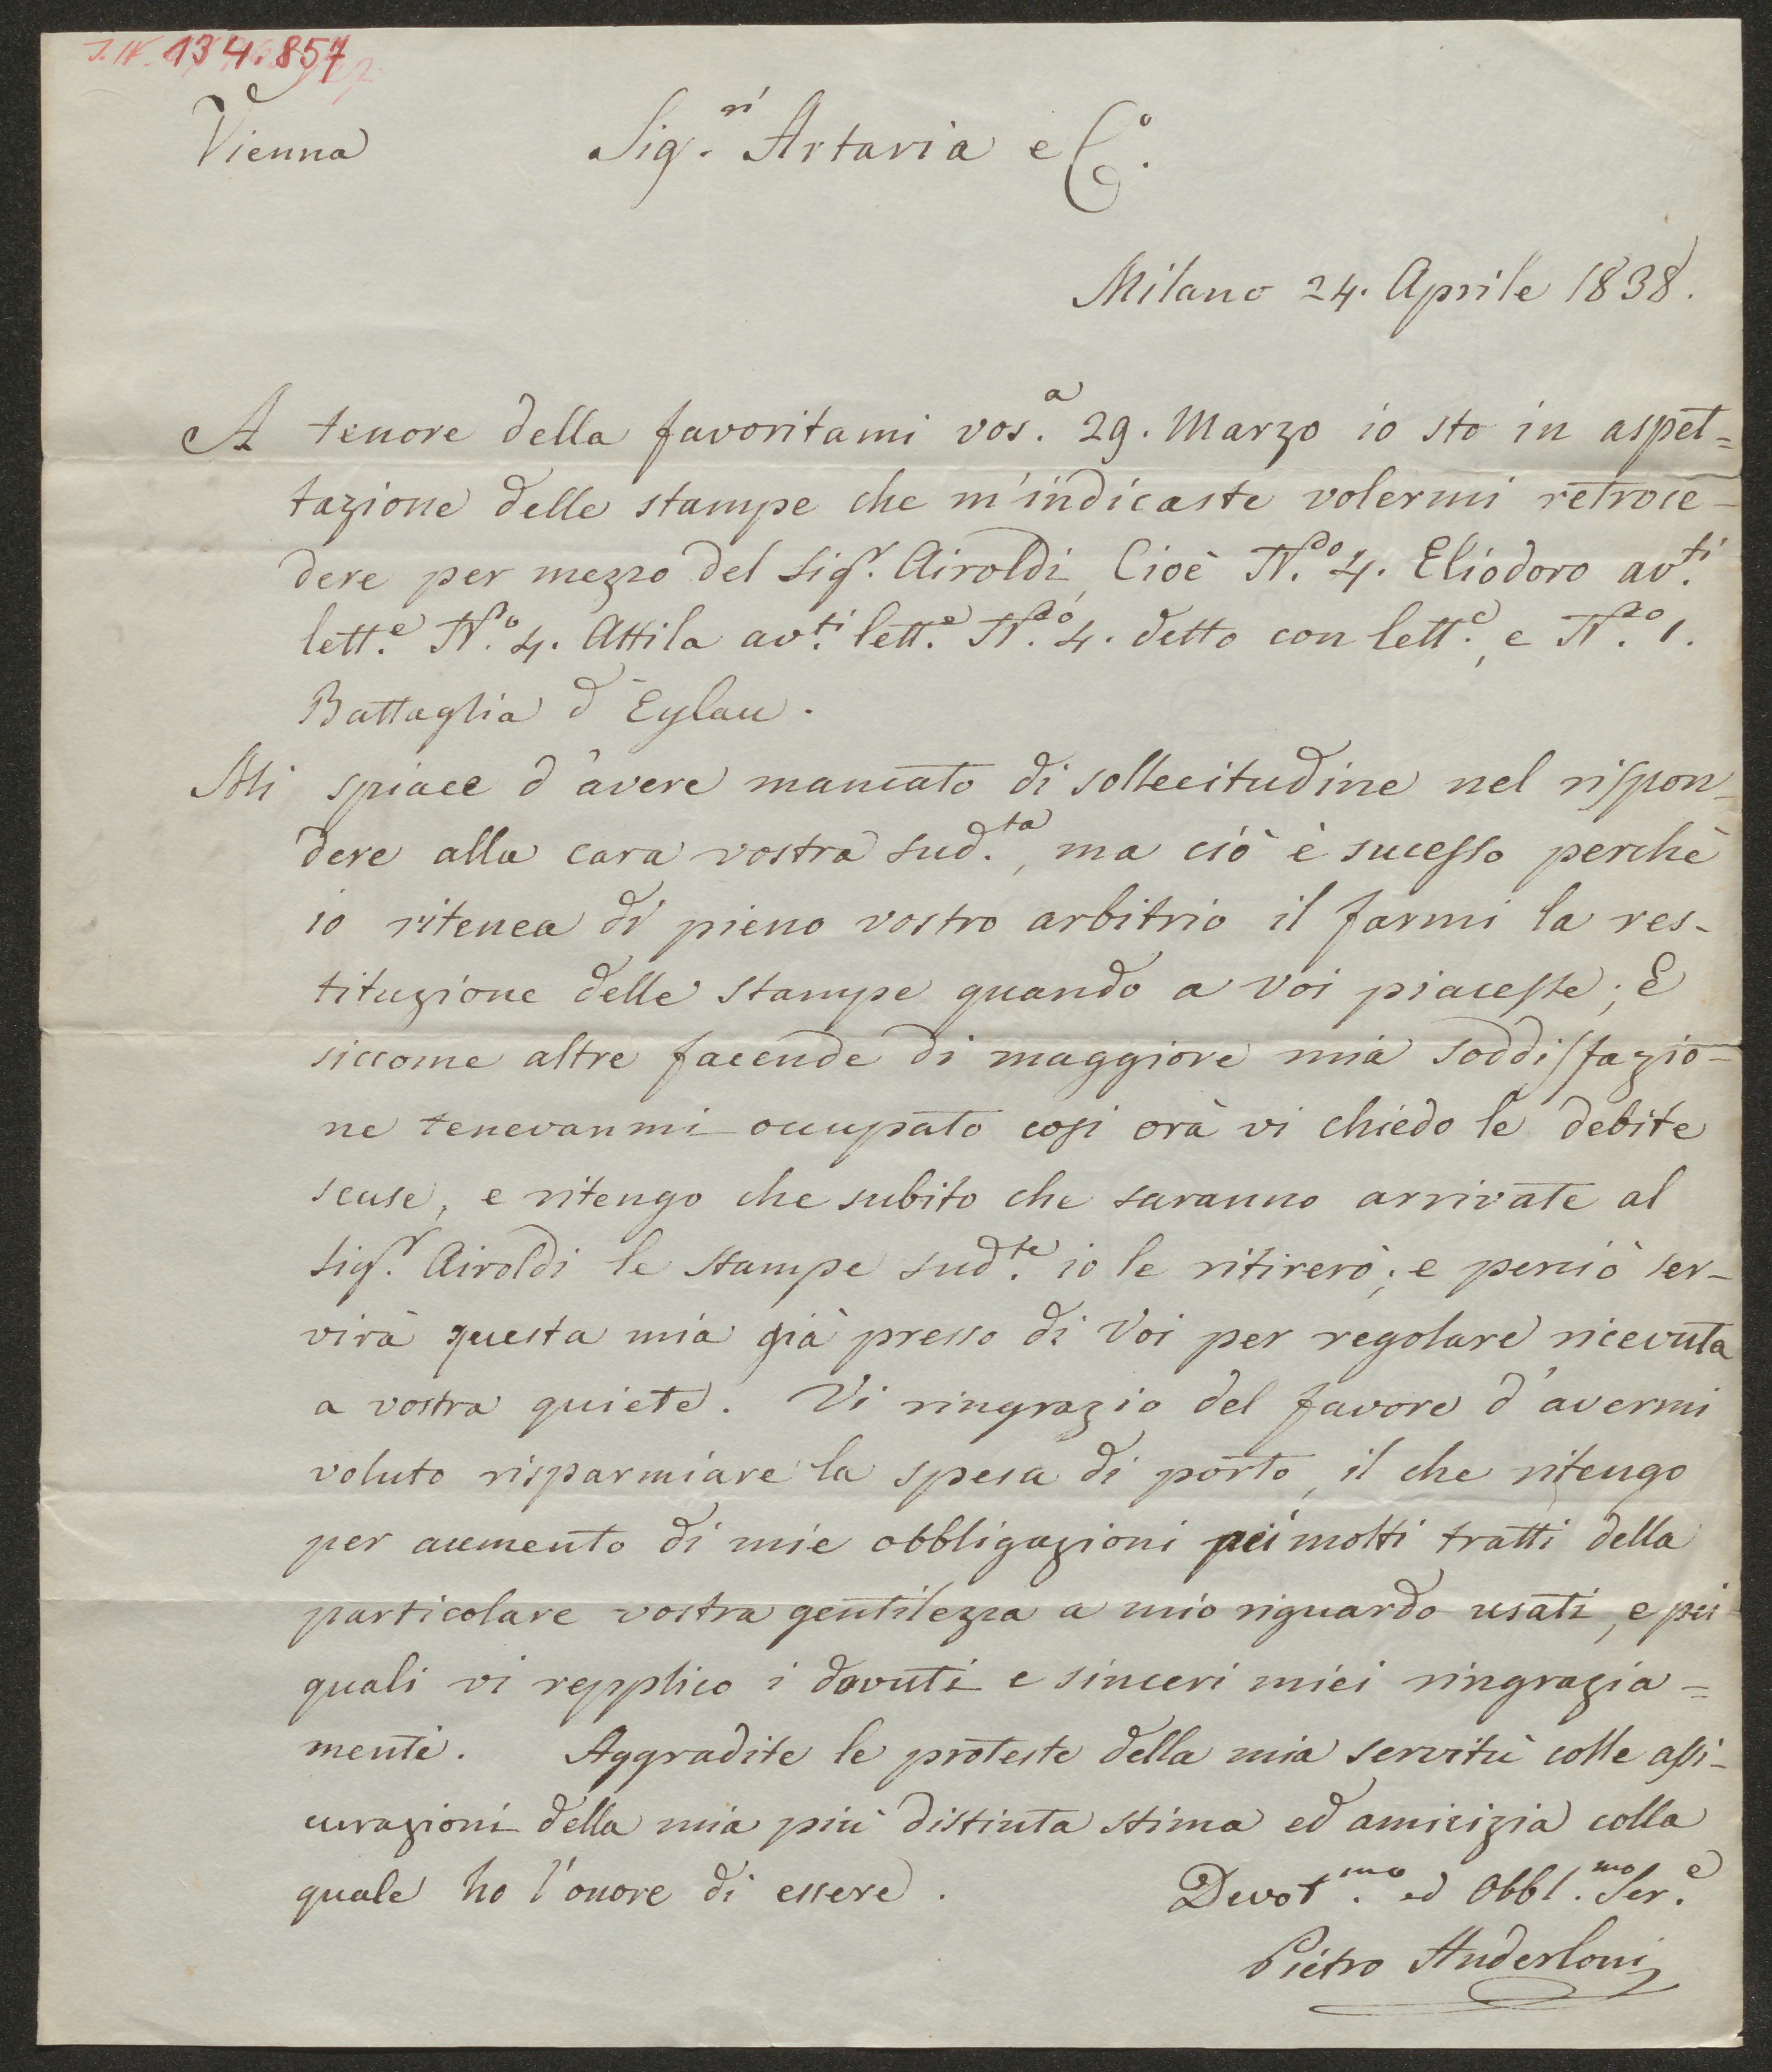 J.N. 134.857
Vienna Sig.ri Artaria e C.o
Milano 24. Aprile 1838.
A tenore della favoritami vos.a 29. Marzo io sto in aspet=
tazione delle stampe che m'indicaste volermi retroce-
dere per mezzo del Sigr. Airoldi, Cioè N.o 4. Eliodoro av.ti
lett.e N.o 4. Attila av.ti lett.e N.o 4. detto con lett.e, e N.o 1.
Battaglia d'Eylau.
Mi spiace d'avere mancato di sollecitudine nel rispon-
dere alla cara vostra sud.ta, ma ciò è sucesso perchè
io ritenea di pieno vostro arbitrio il farmi la res-
tituzione delle stampe quando a voi piacesse; E
siccome altre facende di maggiore mia soddisfazio-
ne tenevanmi occupato cosi ora vi chiedo le debite
scuse, e ritengo che subito che saranno arrivate al
Sigr. Airoldi le stampe sud.te io le ritirerò; e perciò ser-
virà questa mia già presso di Voi per regolare ricevuta
a vostra quiete. Vi ringrazio del favore d'avermi
voluto risparmiare la spesa di porto, il che ritengo
per aumento di mie obbligazioni pei molti tratti della
particolare vostra gentilezza a mio riguardo usati, e pei
quali vi repplico i dovuti e sinceri miei ringrazia=
menti. Aggradite le proteste della mia servitù colle assi-
curazioni della mia più distinta stima ed amicizia colla
quale ho l'onore di essere. Devot.mo ed Obbl.mo Ser.e
Pietro Anderloni